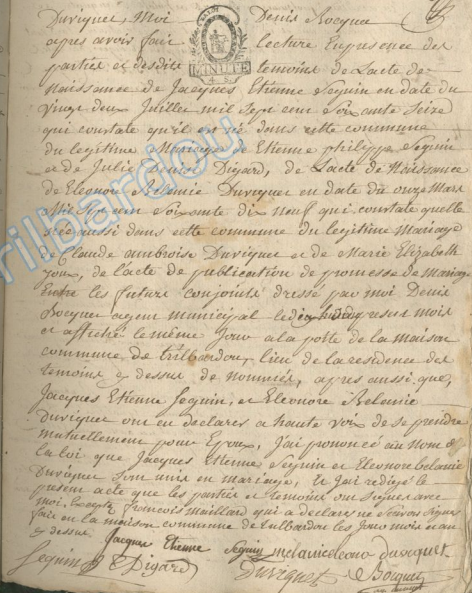 Duvivier, Moi Denis Rocquer
apres avoir fait lecture En presence des
parties et desdits temoins de Lacte de
MINUTE
Naissance de Jacques Etienne Seguin en date du
vingt deux Juillet mil Sept cent Soixante Seize
qui constate qu'il est né dans cette commune
du legitime Mariage de Etienne philippe Seguin
et de Julie Denise Digard, de Lacte de Naissance
de Eleonore Belanie en date du onze Mars
Mil Sept cent Soixante dix neuf qui constate quelle
née aussi dans cette commune du legitime Mariage
de Claude ambroise et de Marie Elizabeth
de lacte de publication de promesse de Mariage
Entre les futurs conjoints dressé par moi Denis
agent municipal le present mois
et affiché le même Jour a la porte de la maison
commune de trilbardou, lieu de la residence des
temoins cy dessus de nommés, apres aussi que,
Jacques Etienne Seguin, et Eleonore Belanie
ont en declarés a haute voix de se prendre
mutuellement pour Epoux, J'ai prononcé au nom de
la loi que Jacques Etienne Seguin et Eleonore belanie
Sont unis en mariage, et Jai redigé le
present acte que les parties et temoins ont Signés avec
moi, Excepté francois maillard qui a declaré ne Savoir Signer
fait en la maison commune de trilbardou les Jour mois et an
cy dessus. Jacques Etienne Seguin
Seguin Digard
trilbardou